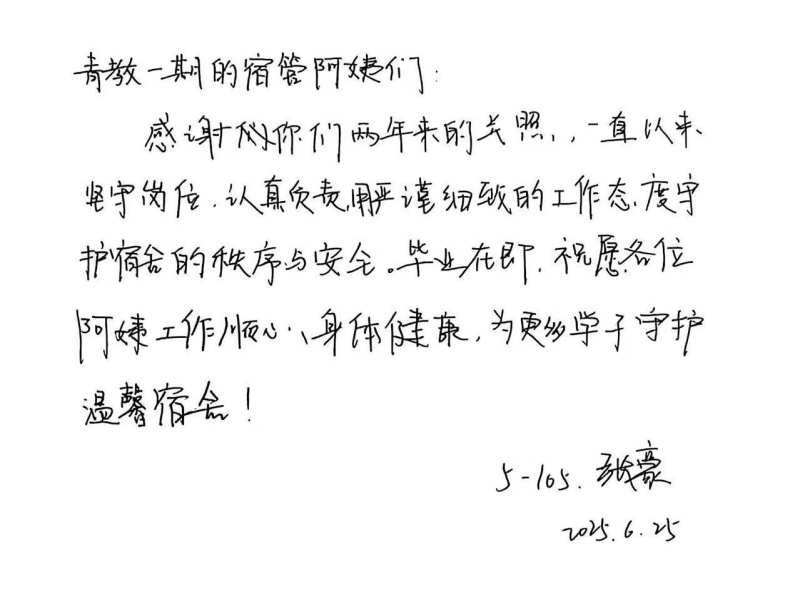 青教一期的宿管阿姨们:
感谢你们两年来的关照,一直以来
坚守岗位,认真负责,用严谨细致的工作态度守
护宿舍的秩序与安全。毕业在即,祝愿各位
阿姨工作顺心、身体健康,为更多学子守护
温馨宿舍!
5-105. 张豪
2025.6.25